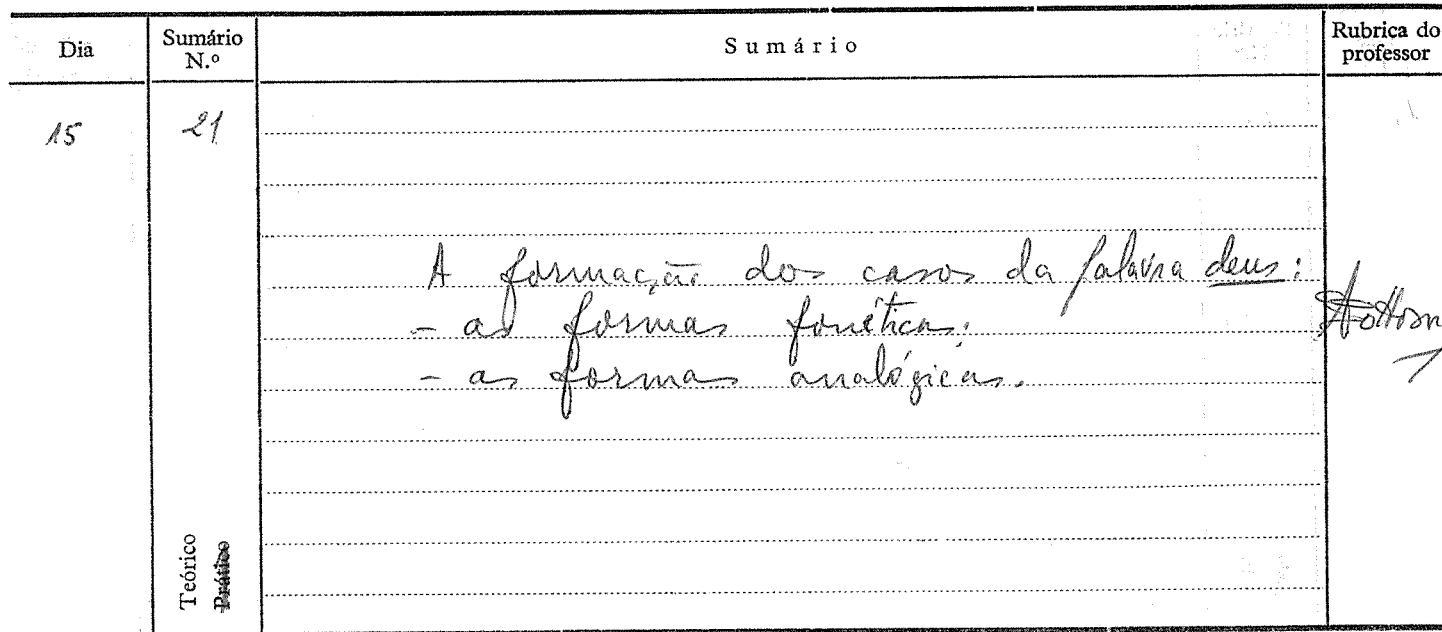 Dia
Sumário
N.º
Sumário
Rubrica do
professor
15
21
A formação dos casos da palavra deus:
- as formas fonéticas;
- as formas analógicas.
Teórico
Prático